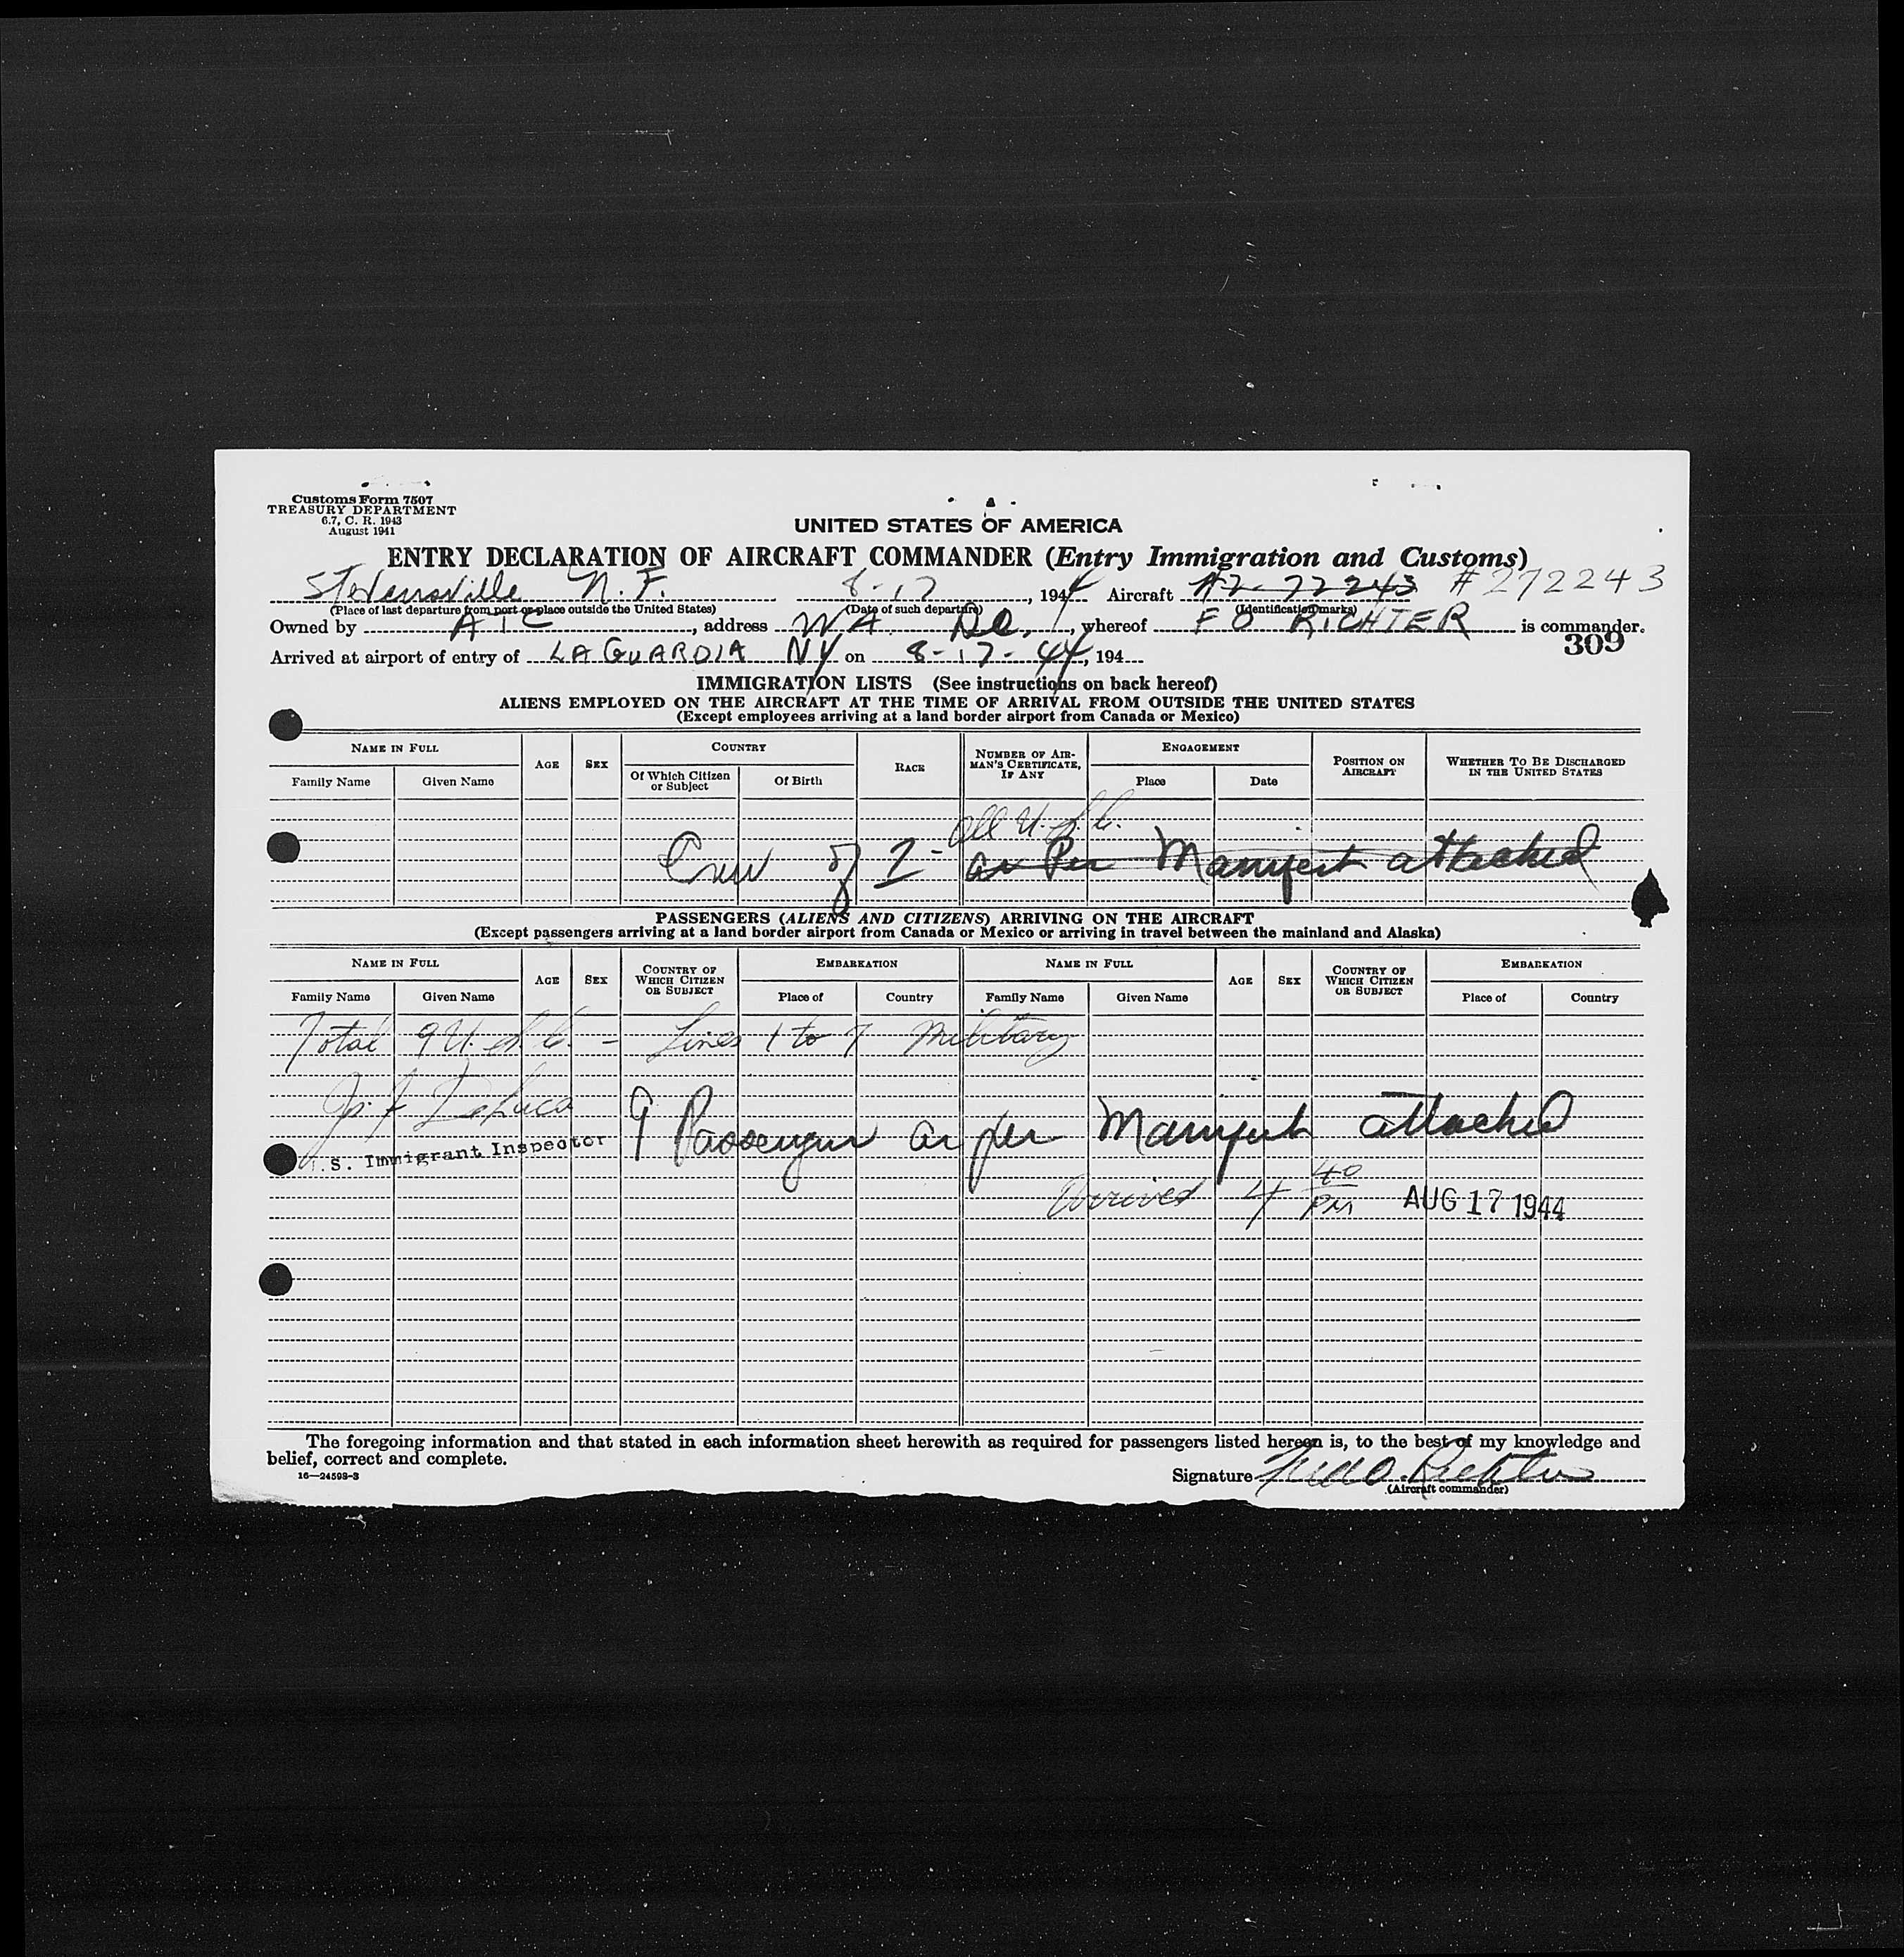 Customs Form 7507
TREASURY DEPARTMENT
6.7, C. R. 1943
August 1941
UNITED STATES OF AMERICA
ENTRY DECLARATION OF AIRCRAFT COMMANDER (Entry Immigration and Customs)
Stevensville N.F. 8-17, 1944 Aircraft #2-72243 #272243
(Place of last departure from port or place outside the United States) (Date of such departure) (Identification marks)
Owned by ATC, address WA DC, whereof F O RICHTER is commander.
309
Arrived at airport of entry of LA GUARDIA NY on 8-17-44, 194
IMMIGRATION LISTS (See instructions on back hereof)
ALIENS EMPLOYED ON THE AIRCRAFT AT THE TIME OF ARRIVAL FROM OUTSIDE THE UNITED STATES
(Except employees arriving at a land border airport from Canada or Mexico)
NAME IN FULL AGE SEX COUNTRY RACE NUMBER OF AIRMAN'S CERTIFICATE, IF ANY ENGAGEMENT POSITION ON AIRCRAFT WHETHER TO BE DISCHARGED IN THE UNITED STATES
Family Name Given Name Of Which Citizen or Subject Of Birth Place Date
All U.S.C.
Crew of 7 - as Per Manifest attached
PASSENGERS (ALIENS AND CITIZENS) ARRIVING ON THE AIRCRAFT
(Except passengers arriving at a land border airport from Canada or Mexico or arriving in travel between the mainland and Alaska)
NAME IN FULL AGE SEX COUNTRY OF WHICH CITIZEN OR SUBJECT EMBARKATION NAME IN FULL AGE SEX COUNTRY OF WHICH CITIZEN OR SUBJECT EMBARKATION
Family Name Given Name Place of Country Family Name Given Name Place of Country
Total 9 U.S.C. - Lines 1 to 7 Military
DeLuca
9 Passengers as per Manifest attached
U.S. Immigrant Inspector
Arrived 4 40 PM AUG 17 1944
The foregoing information and that stated in each information sheet herewith as required for passengers listed hereon is, to the best of my knowledge and
belief, correct and complete.
16—24598-3
Signature Richter
(Aircraft commander)